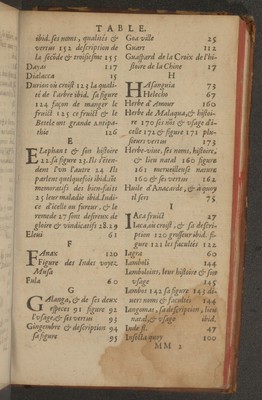 TABLE.
ibid. ses noms, qualités &
vertus 152 description de
la secõde & troisiesme 155
Dayat 117
Dialacca 15
Durion où croist 125 la quali-
té de l'arbre ibid. sa figure
124 façon de manger le
fruict 125 ce fruict & le
Betele ont grande Antipa-
thie 126
E
Elephant & son histoire
22 sa figure 23. Ils s'éten-
dent l'un l'autre 24 Ils
parlent quelquefois ibid. ils
memoratifs des bien-faits
25 leur maladie ibid. Indi-
ce d'icelle en fureur, & le
remede 27 sont desireux de
gloire & vindicatifs 28.29
Eleni 61
F
Faux 120
Figure des Indes voyez
Musa
Fula 60
G
Galanga, & de ses deux
especes 91 figure 92
l'usage & ses vertus 93
Gingembre & description 94
sa figure 95
Goa ville 25
Guare 112
Guaspard de la Croix de l'hi-
stoire de la Chine 17
H
Hasanguia 75
Helecho 67
Herbe d'Amour 160
Herbe de Malaqua, & histoi-
re 170 ses nõs & vsage d'i-
celle 172 & figure 171 plu-
sieurs vertus 173
Herbe-viue, ses noms, histoire,
& lieu natal 160 figure
161 merueilleuse nature
160 & ses vertus 162
Huile d'Anacarde, & à quoy
il sert 75
I
Iaca fruict 27
Iaca, où croist, & sa descri-
ption 120 grosseur ibid. fi-
gure 121 les facultés 122
Iagra 60
Lamboli 144
Lamboloins, leur histoire & son
vsage 145
Iambos 142 sa figure 143 di-
uers noms & facultés 144
Iangomas, sa description, lieu
natal, & vsage ibid.
Inde fl. 47
MM 2